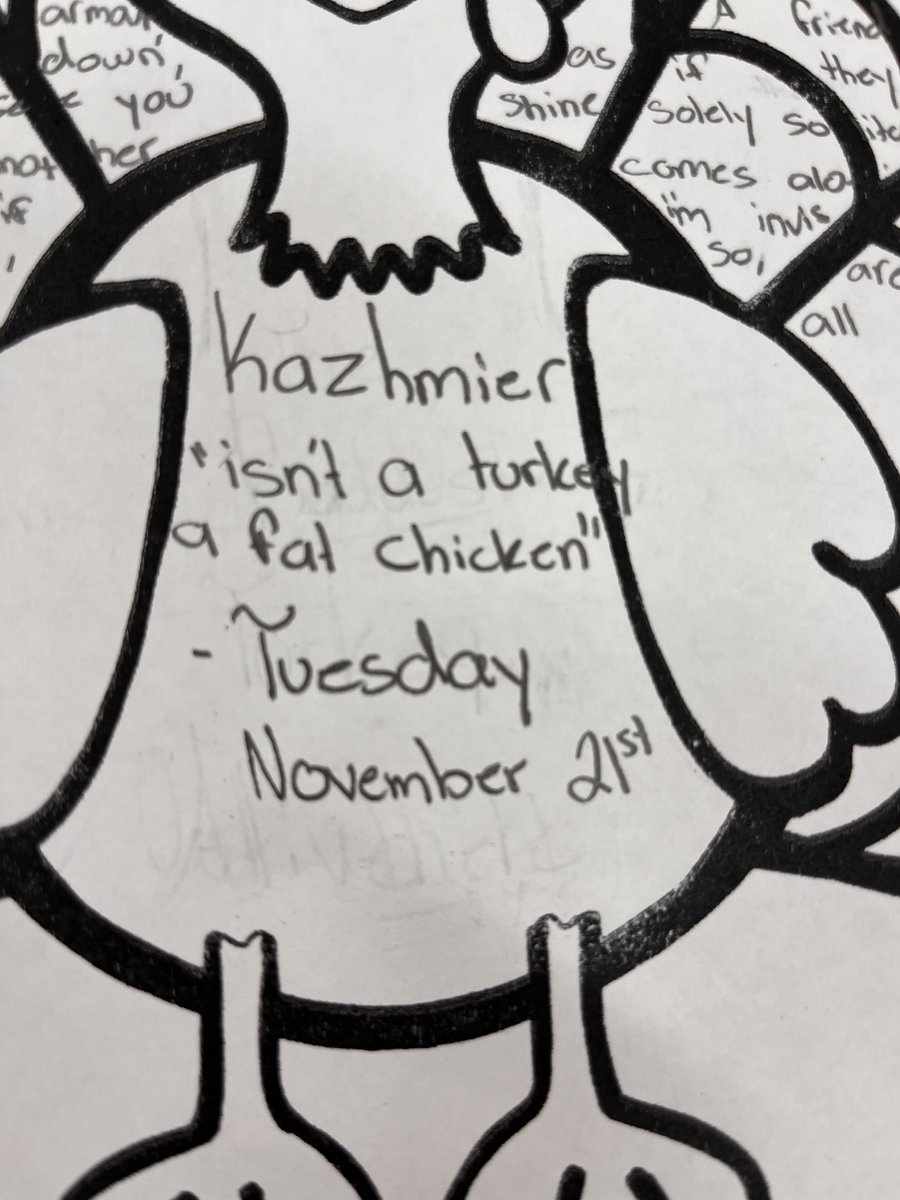 down,
you
as
shine
A friend
if they
solely so
comes
"im
so,
all
Kazhmier
"isn't a turkey
a fat chicken"
- Tuesday
November 21st